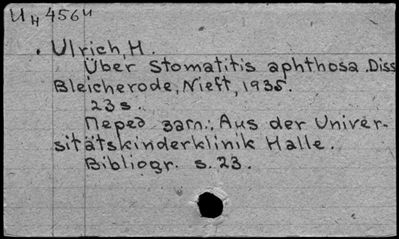 Ин 4564
Ulrich, H.
Über Stomatitis aphthosa. Diss
Bleicherode, Nieft, 1935.
23 s.
Перед загл.: Aus der Univer-
sitätskinderklinik Halle.
Bibliogr. s. 23.